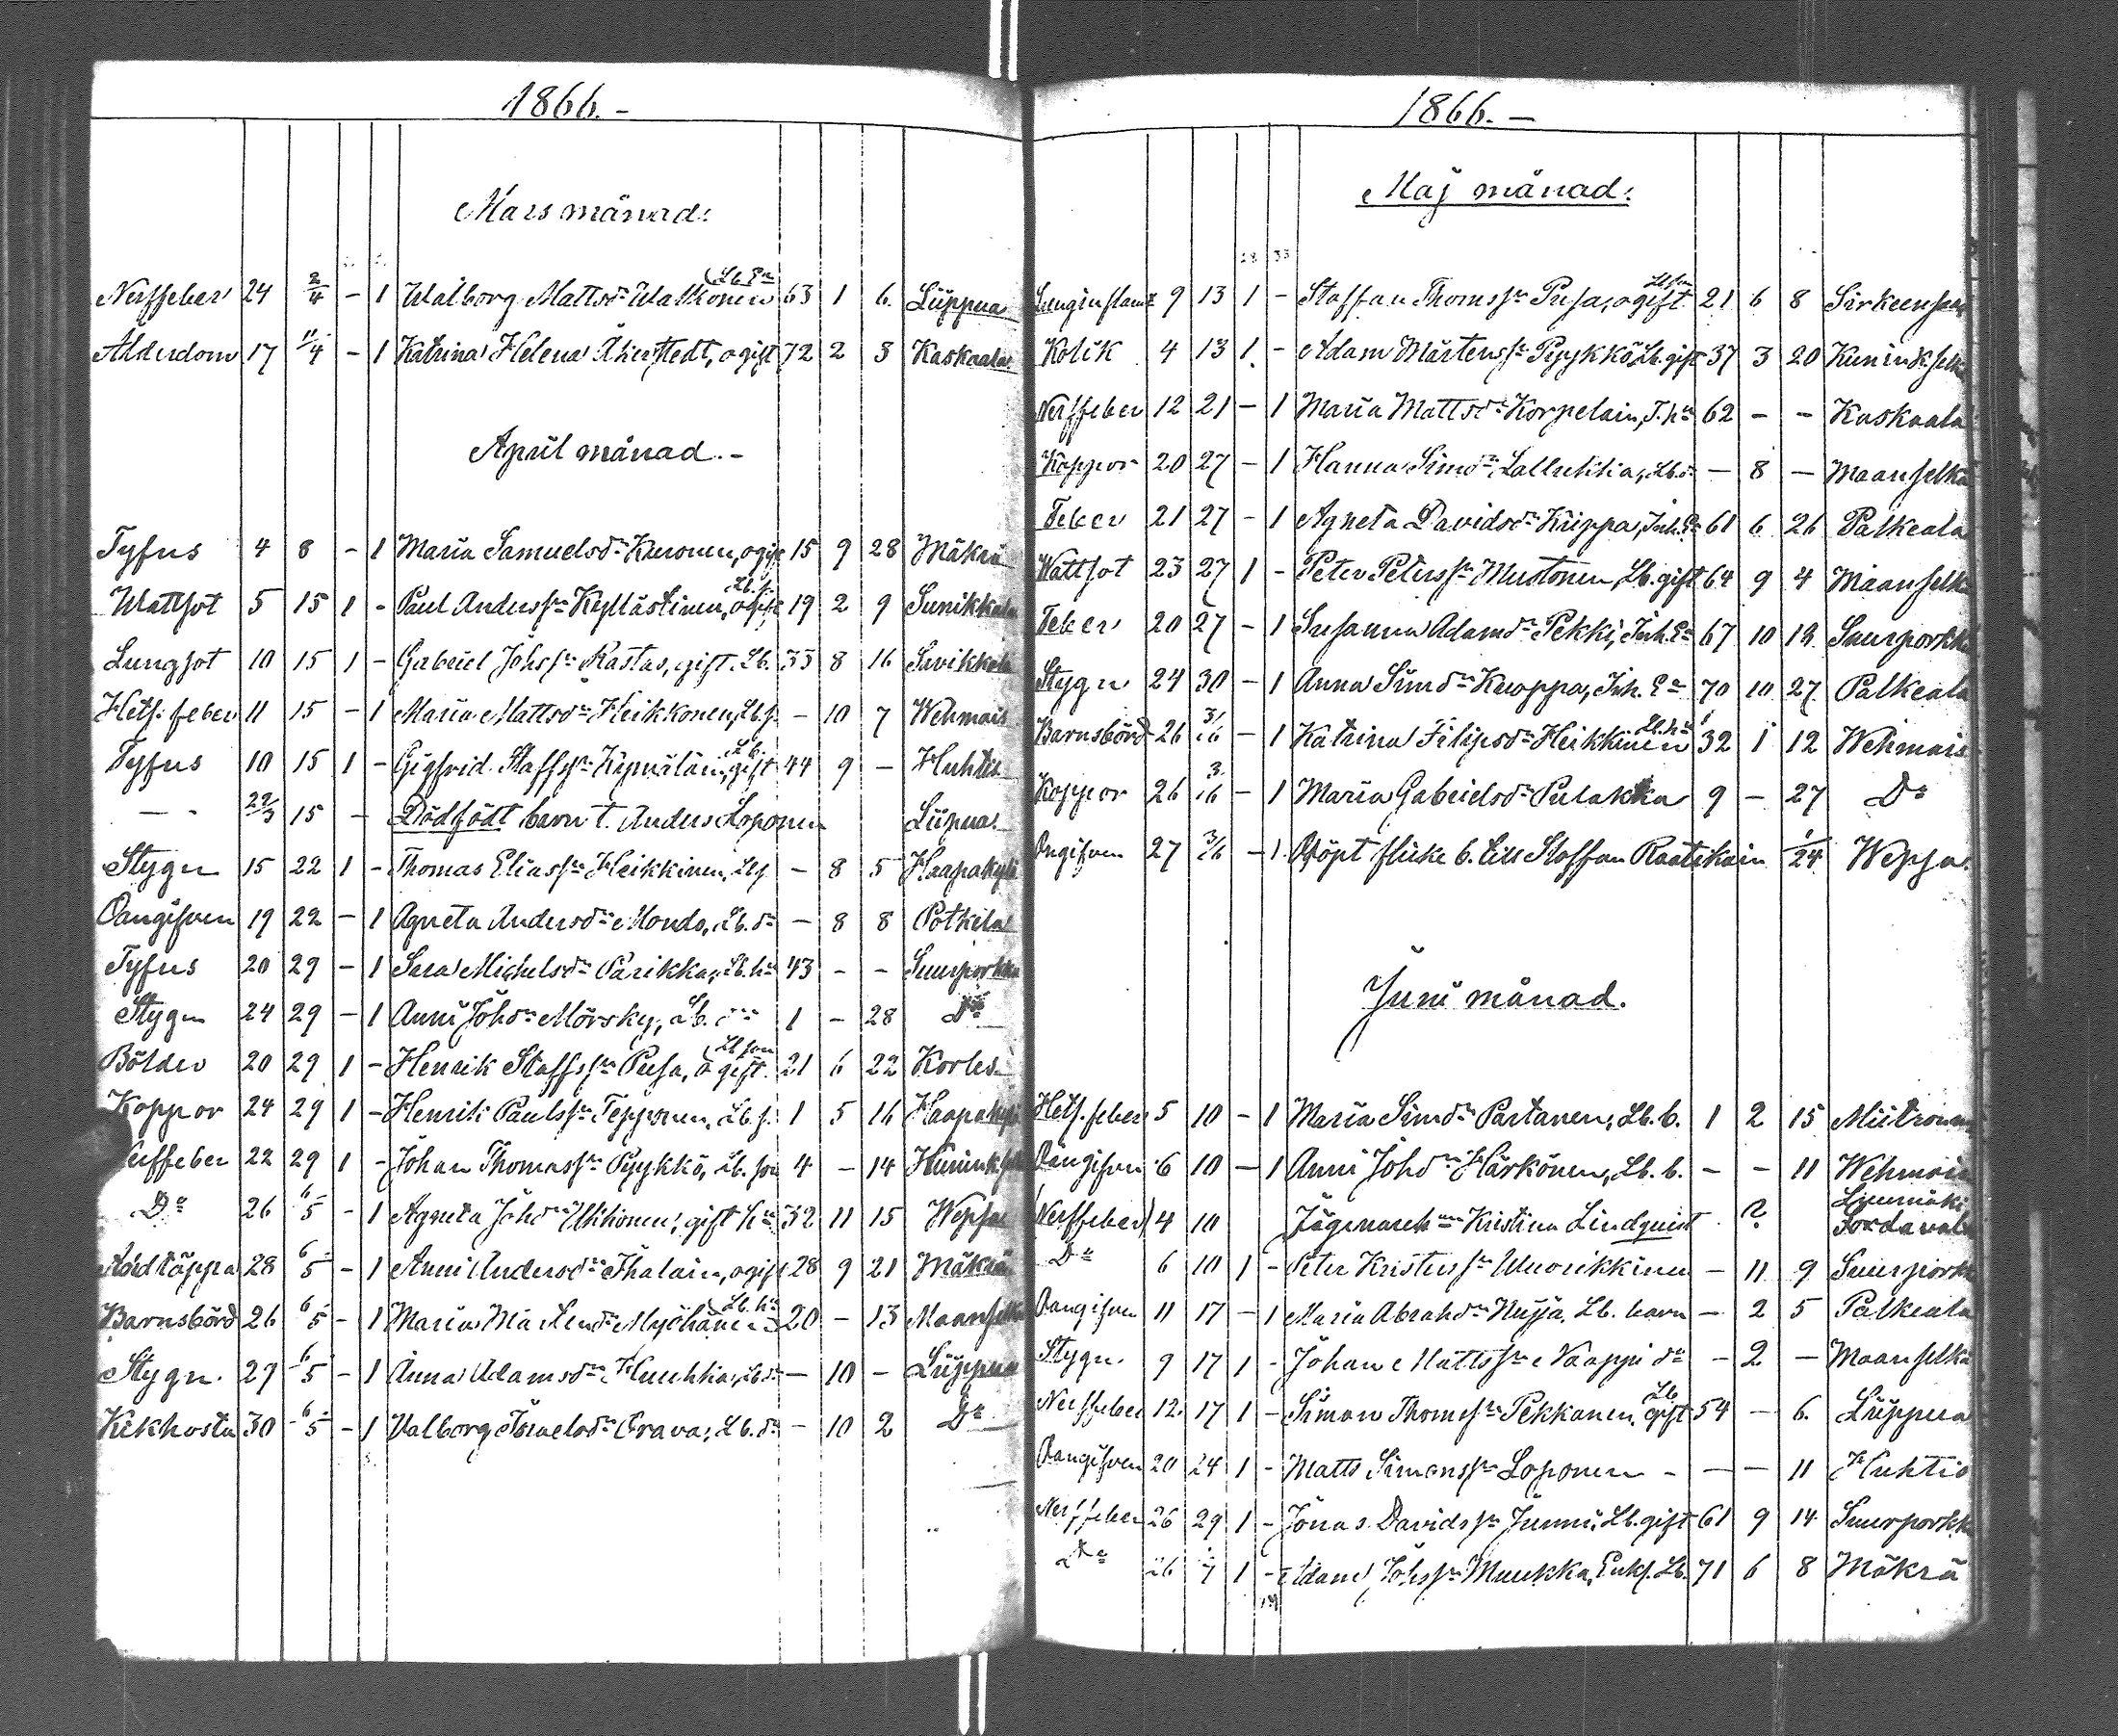 1866.-
Mars månad:
Nerffeber 24 2/4 - 1 Walborg Mattsdr Watkonen Lb. Ea 63 1 6. Liippua
Ålderdom 17 11/4 - 1 Katrina Helena Åkerstedt, ogift 72 2 3 Kaskaala
April månad.-
Tyfus 4 8 - 1 Maria Samuelsdr Kuronen, ogift 15 9 28 Mäkrä
Wattsot 5 15 1 - Paul Anderssn Kyllästinen, ogift Lb. s. 19 2 9 Sunikkala
Lungsot 10 15 1 - Gabriel Johssn Rastas, gift. Lb. 33 8 16 Savikkola
Hets. feber 11 15 - 1 Maria Mattsdr Heikkonen, Lb. - 10 7 Wehmais
Tyfus 10 15 1 - Sigfrid Staffssn gift Lb. 44 9 - Huhtis
- 15 - Dödfödt barn t. Anders Loponen Liipua
Stygn 15 22 1 - Thomas Eliassn Heikkinen, - 8 5 Haapakylä
Oangifven 19 22 - 1 Agneta Andersdr Mondo, Lb. dr - 8 8 Potkela
Tyfus 20 29 - 1 Sara Michelsdr Parikka, Lb. hu 43 - - Suurporkka
Stygn 24 29 - 1 Anni Johdr Mörsky, Lb. dr 1 - 28 Do
Bölder 20 29 1 - Henrik Staffssn Pusa, ogift. Lb son 21 6 22 Korles
Koppor 24 29 1 - Henrik Paulssn Tepponen, Lb. s. 1 5 16 Haapakylä
22 29 1 - Johan Thomassn Pyykkö, Lb. son 4 - 14
Do 26 6/5 - 1 Agneta Johdr Ukkonen, gift 32 11 15 Wepsa
28 6/5 - 1 Anni Andersdr Ihalain, ogift 28 9 21 Mäkrä
Barnsbörd 26 6/5 - 1 Maria Lb. hu 20 - 13 Maanselkä
Stygn. 29 6/5 - 1 Anna Adamsdr Huuhka, Lb. dr - 10 - Liippua
Kikhosta 30 6/5 - 1 Valborg Israelsdr Orava, Lb. dr - 10 2 Do
1866.-
Maj månad:
28 33
9 13 1 - Staffan Thomssn Pusa, ogift Lb son 21 6 8
Kolik 4 13 1. - Adam Mårtenssn Pyykkö, Lb. gift 37 3 20 Kuninkselkä
Nerffeber 12 21 - 1 Maria Mattsdr Korpelain, T. hu 62 - - Kaskaala
Koppor 20 27 - 1 Hanna Simdr Lallukka, Lb. dr - 8 - Maanselkä
Feber 21 27 - 1 Agneta Davidsdr Kuppa, Inh. Ea 61 6 26 Palkeala
Wattsot 23 27 1 - Peter Peterssn Mustonen, Lb. gift 64 9 4 Maanselkä
Feber 20 27 - 1 Susanna Adamdr Pekki, Inh. Ea 67 10 13 Suurporkka
Stygn 24 30 - 1 Anna Simdr Kuoppa, Inh. Ea 70 10 27 Palkeala
Barnsbörd 26 3/6 - 1 Katrina Filipsdr Heikkinen Lb. hu 32 1 12 Wehmais
Koppor 26 3/6 - 1 Maria Gabrielsdr Pulakka 9 - 27 Do
Ongifven 27 3/6 - 1 Odöpt flicka b. till Staffan Raatikain 1/24 Wepsa.
Juni månad.
Hets. feber 5 10 - 1 Maria Simdr Partanen, Lb. b. 1 2 15
Oangifven 6 10 - 1 Anni Johdr Härkönen, Lb. b. - - 11 Wehmais
Nerffeber 4 10 Kristina Lindquist ? Sordavala
Do 6 10 1 - Peter Kristerssn Uuorikkinen - 11 9 Suurporkka
Oangifven 11 17 - 1 Maria Abrahdr Lb. barn - 2 5 Palkeala
Stygn. 9 17 1 - Johan Mattssn Naappi dr - 2 - Maanselkä
Nerffeber 12. 17 1 - Simon Thomssn Pekkanen, gift Lb 54 - 6. Liippua
Oangifven 20 24 1 - Matts Simonssn Loponen - - - 11 Huhtis
Nerffeber 26 29 1 - Jonas Davidssn Junni, Lb. gift 61 9 14 Suurporkk
Do 26 1/7 1 - Adam Johssn Muukka, Enkl. Lb. 71 6 8 Mäkrä